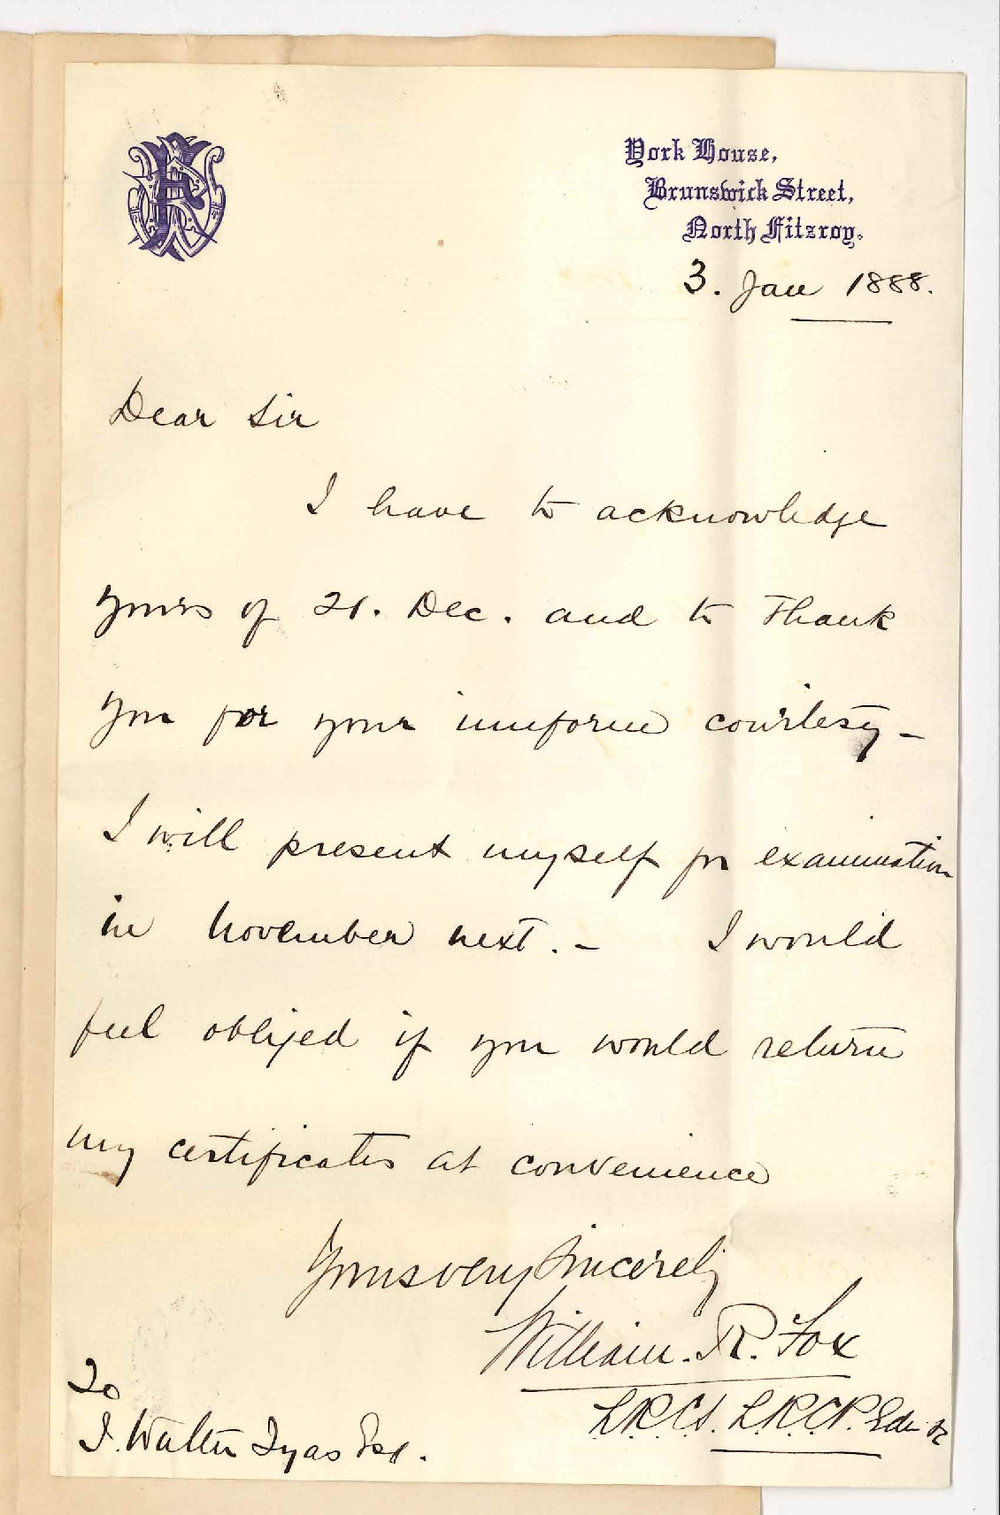 York House,
Brunswick Street,
North Fitzroy.
3. Jan 1888.
Dear Sir
I have to acknowledge
yours of 21. Dec. and to thank
you for your uniform courtesy –
I will present myself for examination
in November next. – I would
feel obliged if you would return
my certificates at convenience
Yours very Sincerely
William. R. Fox
L.R.C.S. L.R.C.P. Edin
To
J. Walter Tyas Esq.